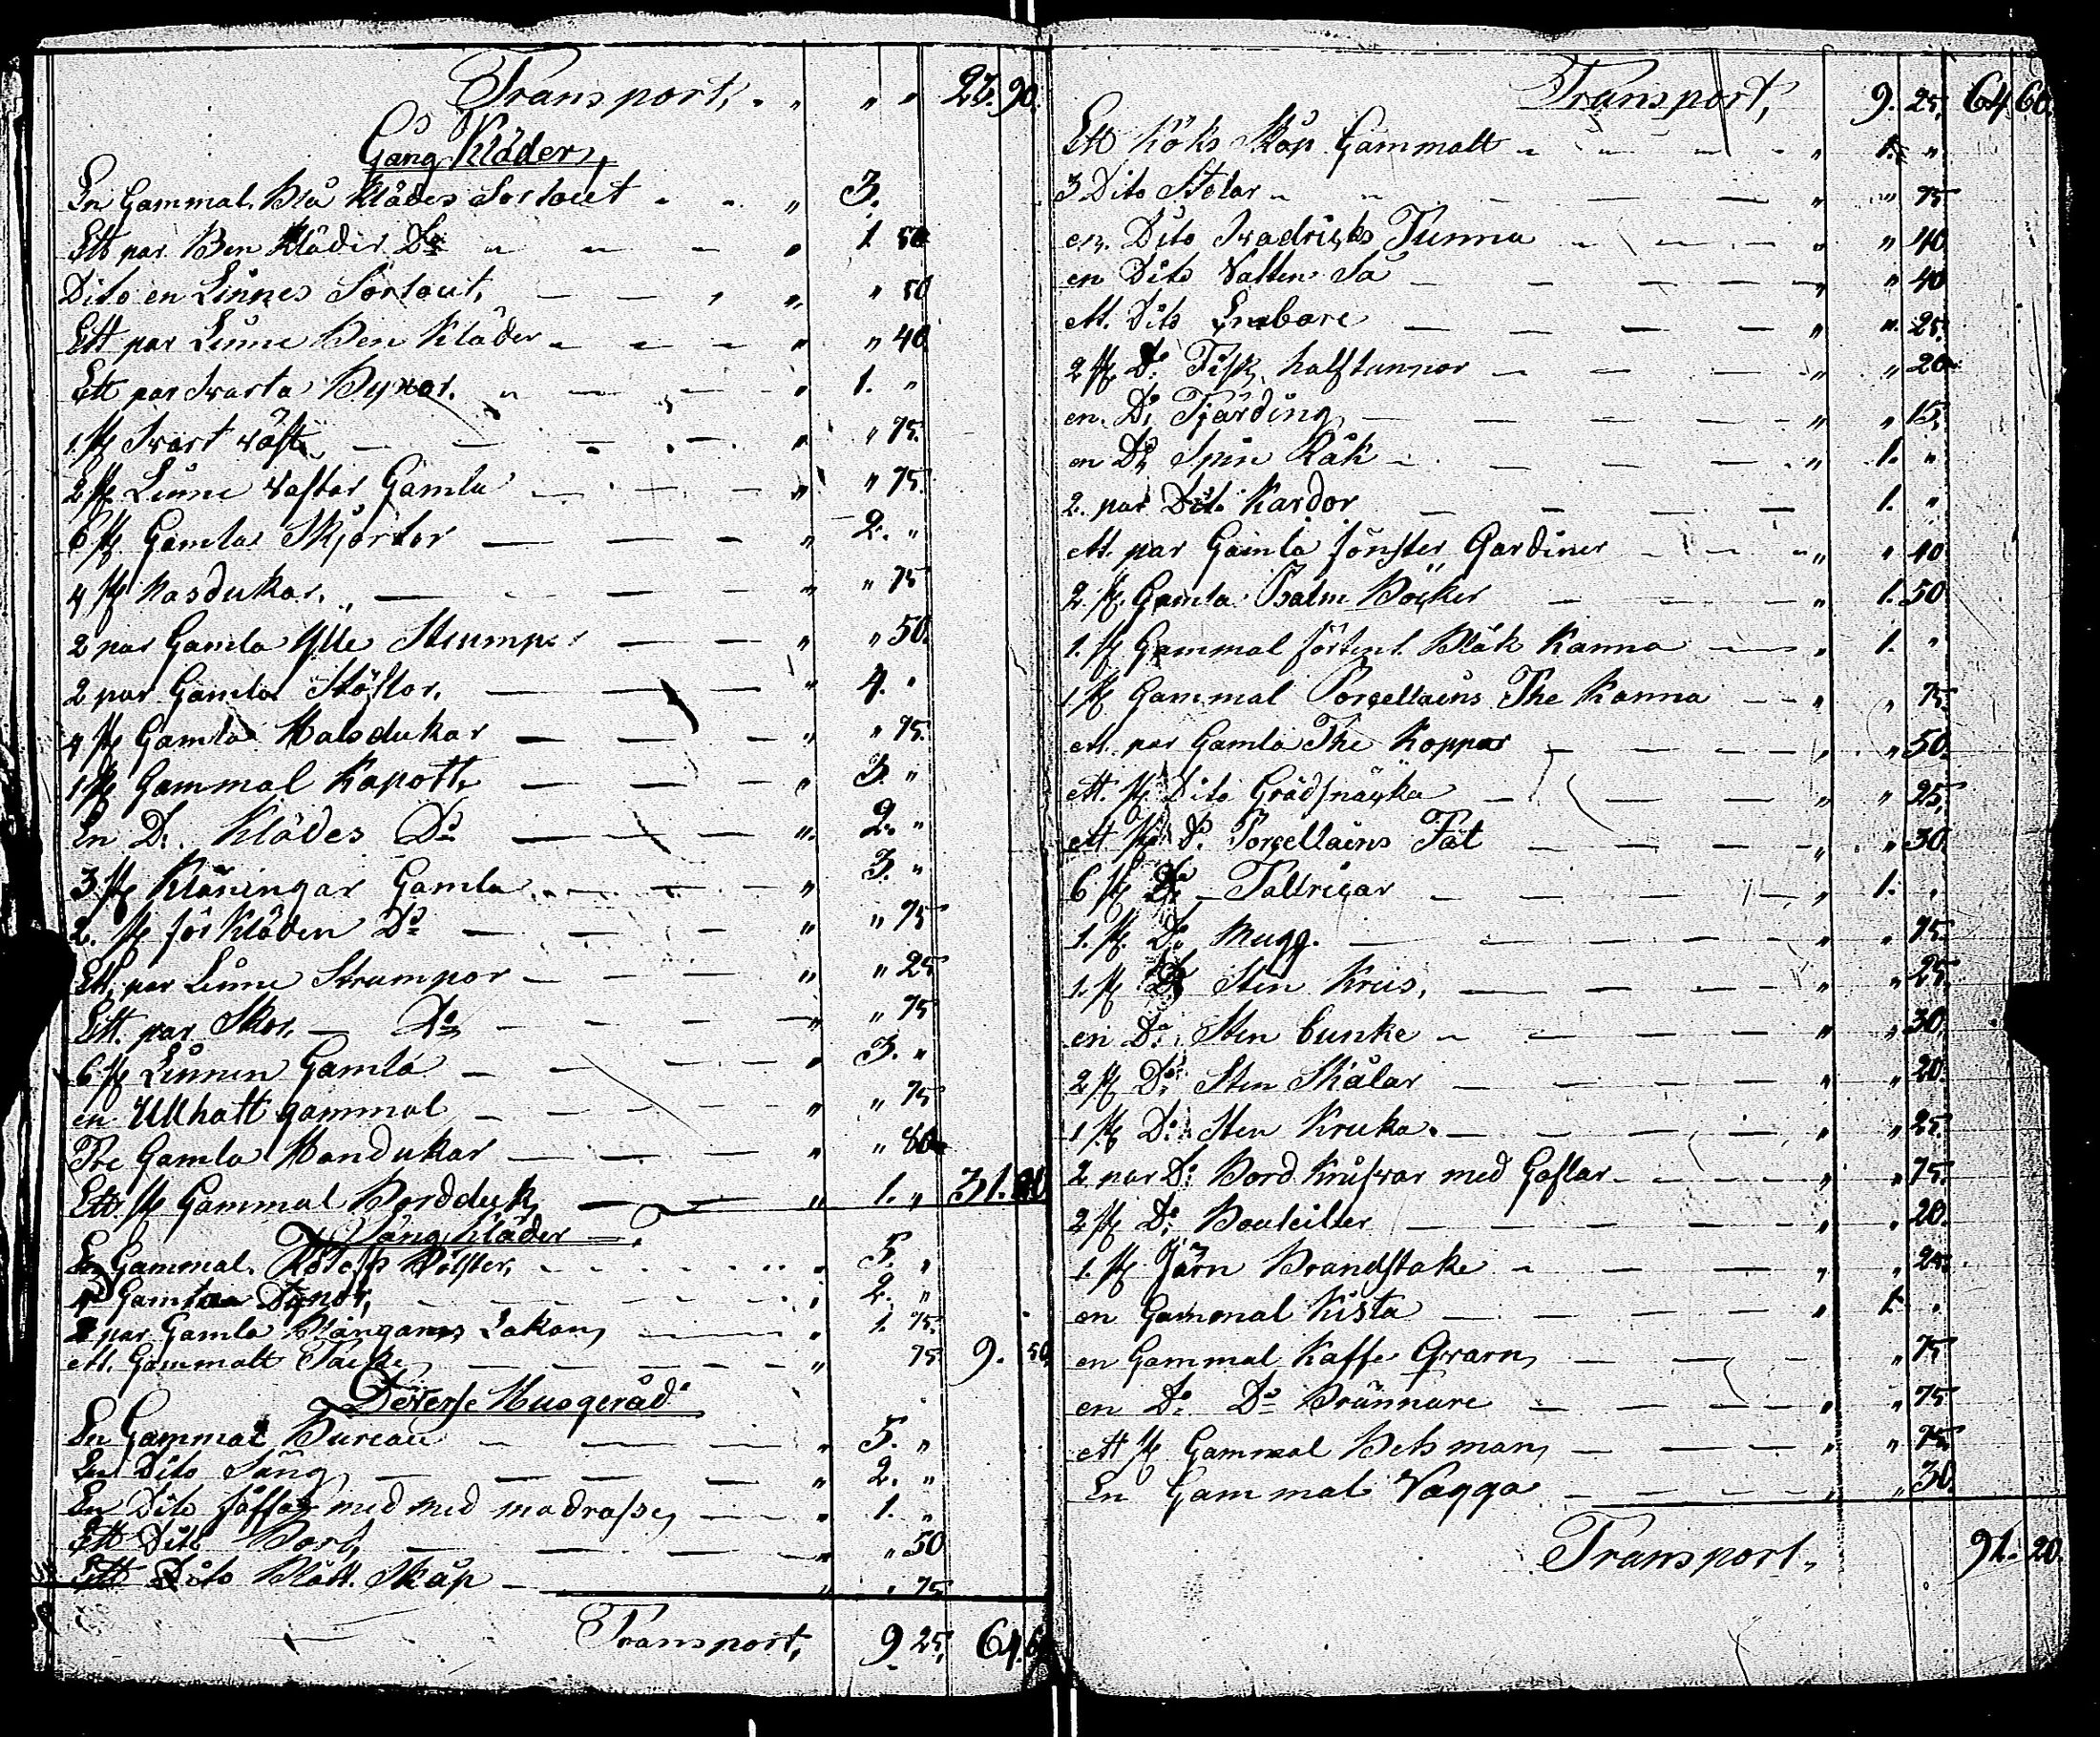 Transport, „ „ 22. 90.
Gång Kläder,
En Gammal. Blå Klädes Sortout „ 3.
Ett par Ben Kläder Do „ 1. 50
Dito en Linnes Sortout, „ „ 50
Ett par Linne Ben Kläder „ „ 40
Ett par Svarta Byxor. „ 1. „
1 st Svart väst „ „ 75.
2 st Linne Vastar Gamla „ „ 75.
6 st Gamla Skjortor „ 2. „
4 st Nasdukar. „ „ 75
2 par Gamla Ylle Strumpor „ „ 50.
2 par Gamla Stöflor. „ 4. „
4 st Gamla Halsdukar „ „ 75.
1 st Gammal Kapott „ 3. „
En Do. Klädes Do „ 2. „
3 st Kläningar Gamla „ 3. „
2. st för Kläden Do „ „ 75
Ett par Linne Strumpor „ „ 25
Ett par Skor. Do „ „ 75
6 st Linnen Gamla „ 3. „
en Ullhatt gammal „ „ 75
Tre Gamla Handukar „ „ 80
Ett st Gammal Bordduk „ 1. „ 31.
Säng Kläder
En Gammal. Bolster, „ 5. „
4 Gamla Dynor, „ 2. „
par Gamla Blångarns Lakan, „ 1. 75.
ett. Gammalt Täcke „ 75 9. 50
Diverse Husgeråd
En Gammal Bureau „ 5. „
En Dito Säng, „ 2. „
En Dito soffa med med madrasse, „ 1. „
Ett Dito Bord, „ „ 50
Ett Dito Blått. Skåp „ 75
Transport, 9. 25, 64.
Transport, 9. 25, 64 60.
Ett Köks Skåp Gammalt „ 1. „
3 Dito Stolar „ „ 75
en. Dito Svadricks Tunna „ „ 40
en Dito Vatten Så „ „ 40
ett. Dito Embare „ „ 25.
2 st Do. Fisk halftunnor „ „ 20
en. Do. Fjärding „ „ 15.
en Do Spin Råk „ 1. „
2. par Dito Kardor 1. „
ett. par Gamla fönster Gardiner „ „ 40
2 st. Gamla Psalm Böcker „ 1. 50
1. st Gammal förtent. Bläk Kanna „ 1. „
1 st Gammal Porcellains The Kanna „ „ 75
ett. par Gamla The Koppar „ „ 50.
ett. st Dito Grädsnäcka „ „ 25,
ett st Do. Porcellains Fat „ „ 30
6 st Do Tallricar „ 1. „
1. st. Do. Mugg. „ „ 75.
1. st Do Sten Krus, „ „ 25.
en Do. Sten bunke „ „ 30,
2 st Do. Sten Skålar „ „ 20.
1 st Do. Sten Kruka. „ „ 25.
2 par Do Bord Knifvar med Gaflar „ „ 75.
2 st Do. Bouteiller „ „ 20.
1. st Järn Brandstake „ „ 25.
en Gammal Kista „ 1. „
en Gammal Kaffe Qvarn, „ 75
en Do. Do Brännare „ „ 75
ett st Gammal Betsman, „ „ 75,
En Gammal Vagga „ „ 30.
Transport, 91. 20.